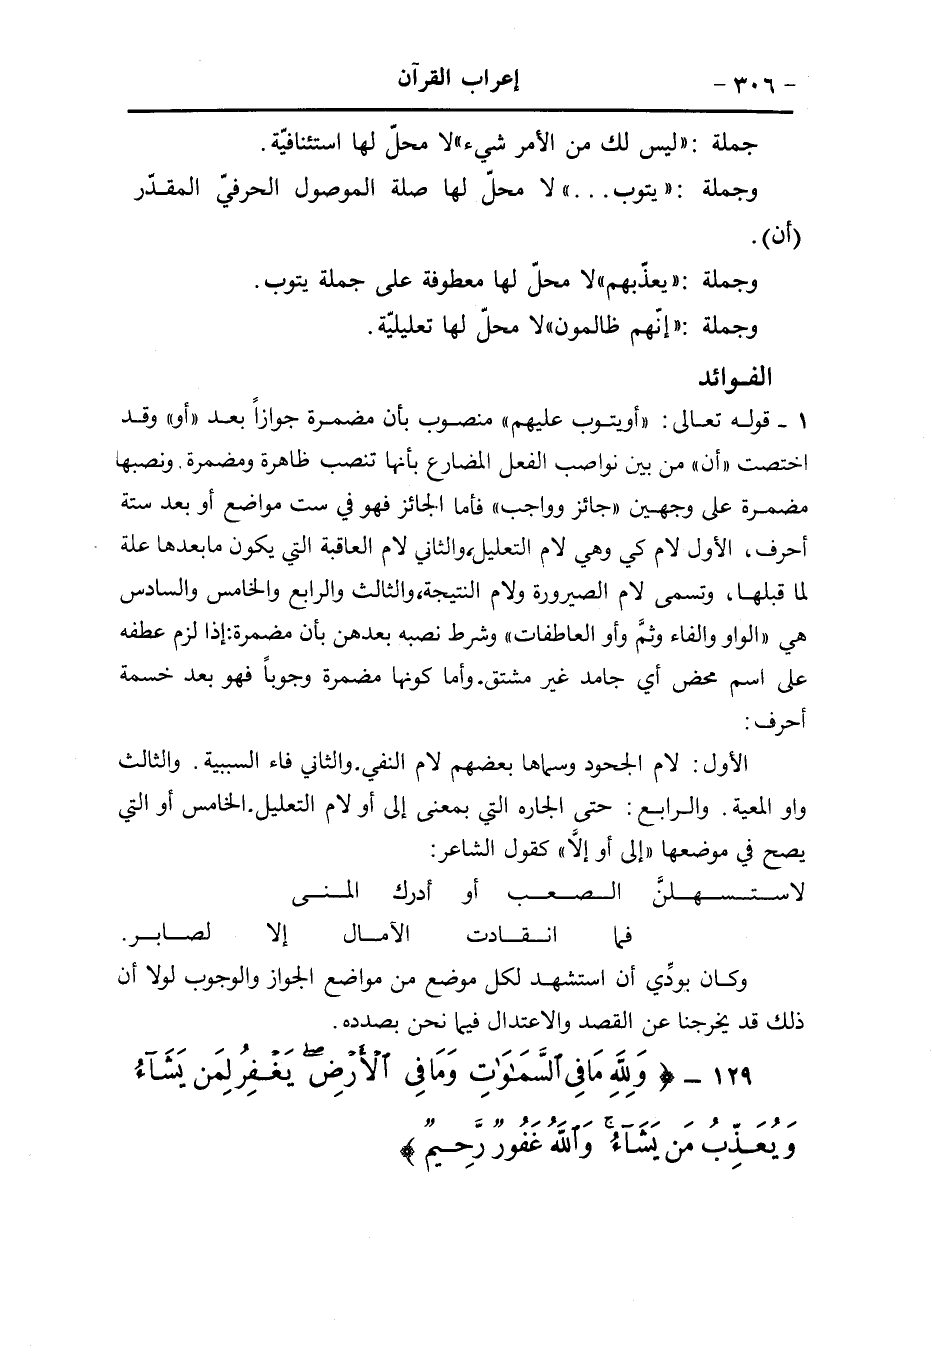 - ٣٠٦ - إعراب القرآن
جملة :«ليس لك من الأمر شيء»لا محلّ لها استئنافيّة .
وجملة :« يتوب. . .» لا محلّ لها صلة الموصول الحرفيّ المقدّر
(أن) .
وجملة :«يعذّبهم»لا محلّ لها معطوفة على جملة يتوب .
وجملة :«إنّهم ظالمون»لا محلّ لها تعليليّة .
الفوائد
١ ـ قوله تعالى: «أويتوب عليهم» منصوب بأن مضمرة جوازاً بعد «أو» وقد
اختصت «أن» من بين نواصب الفعل المضارع بأنها تنصب ظاهرة ومضمرة. ونصبها
مضمرة على وجهين «جائز وواجب» فأما الجائز فهو في ست مواضع أو بعد ستة
أحرف، الأول لام كي وهي لام التعليل،والثاني لام العاقبة التي يكون مابعدها علة
لما قبلها، وتسمى لام الصيرورة ولام النتيجة،والثالث والرابع والخامس والسادس
هي «الواو والفاء وثمَّ وأو العاطفات» وشرط نصبه بعدهن بأن مضمرة:إذا لزم عطفه
على اسم محض أي جامد غير مشتق.وأما كونها مضمرة وجوباً فهو بعد خمسة
أحرف:
الأول: لام الجحود وسماها بعضهم لام النفي.والثاني فاء السببية . والثالث
واو المعية . والرابع: حتى الجاره التي بمعنى إلى أو لام التعليل.الخامس أو التي
يصح في موضعها «إلى أو إلاَّ» كقول الشاعر:
لاستسهلنَّ الصعب أو أدرك المنى
فما انقادت الآمال إلا لصابر.
وكان بودِّي أن استشهد لكل موضع من مواضع الجواز والوجوب لولا أن
ذلك قد يخرجنا عن القصد والاعتدال فيما نحن بصدده.
١٢٩ ـ ﴿ وَلِلَّهِ مَا فِي ٱلسَّمَـٰوَٰتِ وَمَا فِي ٱلْأَرْضِ ۖ يَغْفِرُ لِمَن يَشَآءُ
وَيُعَذِّبُ مَن يَشَآءُ ۚ وَٱللَّهُ غَفُورٌ رَّحِيمٌ ﴾